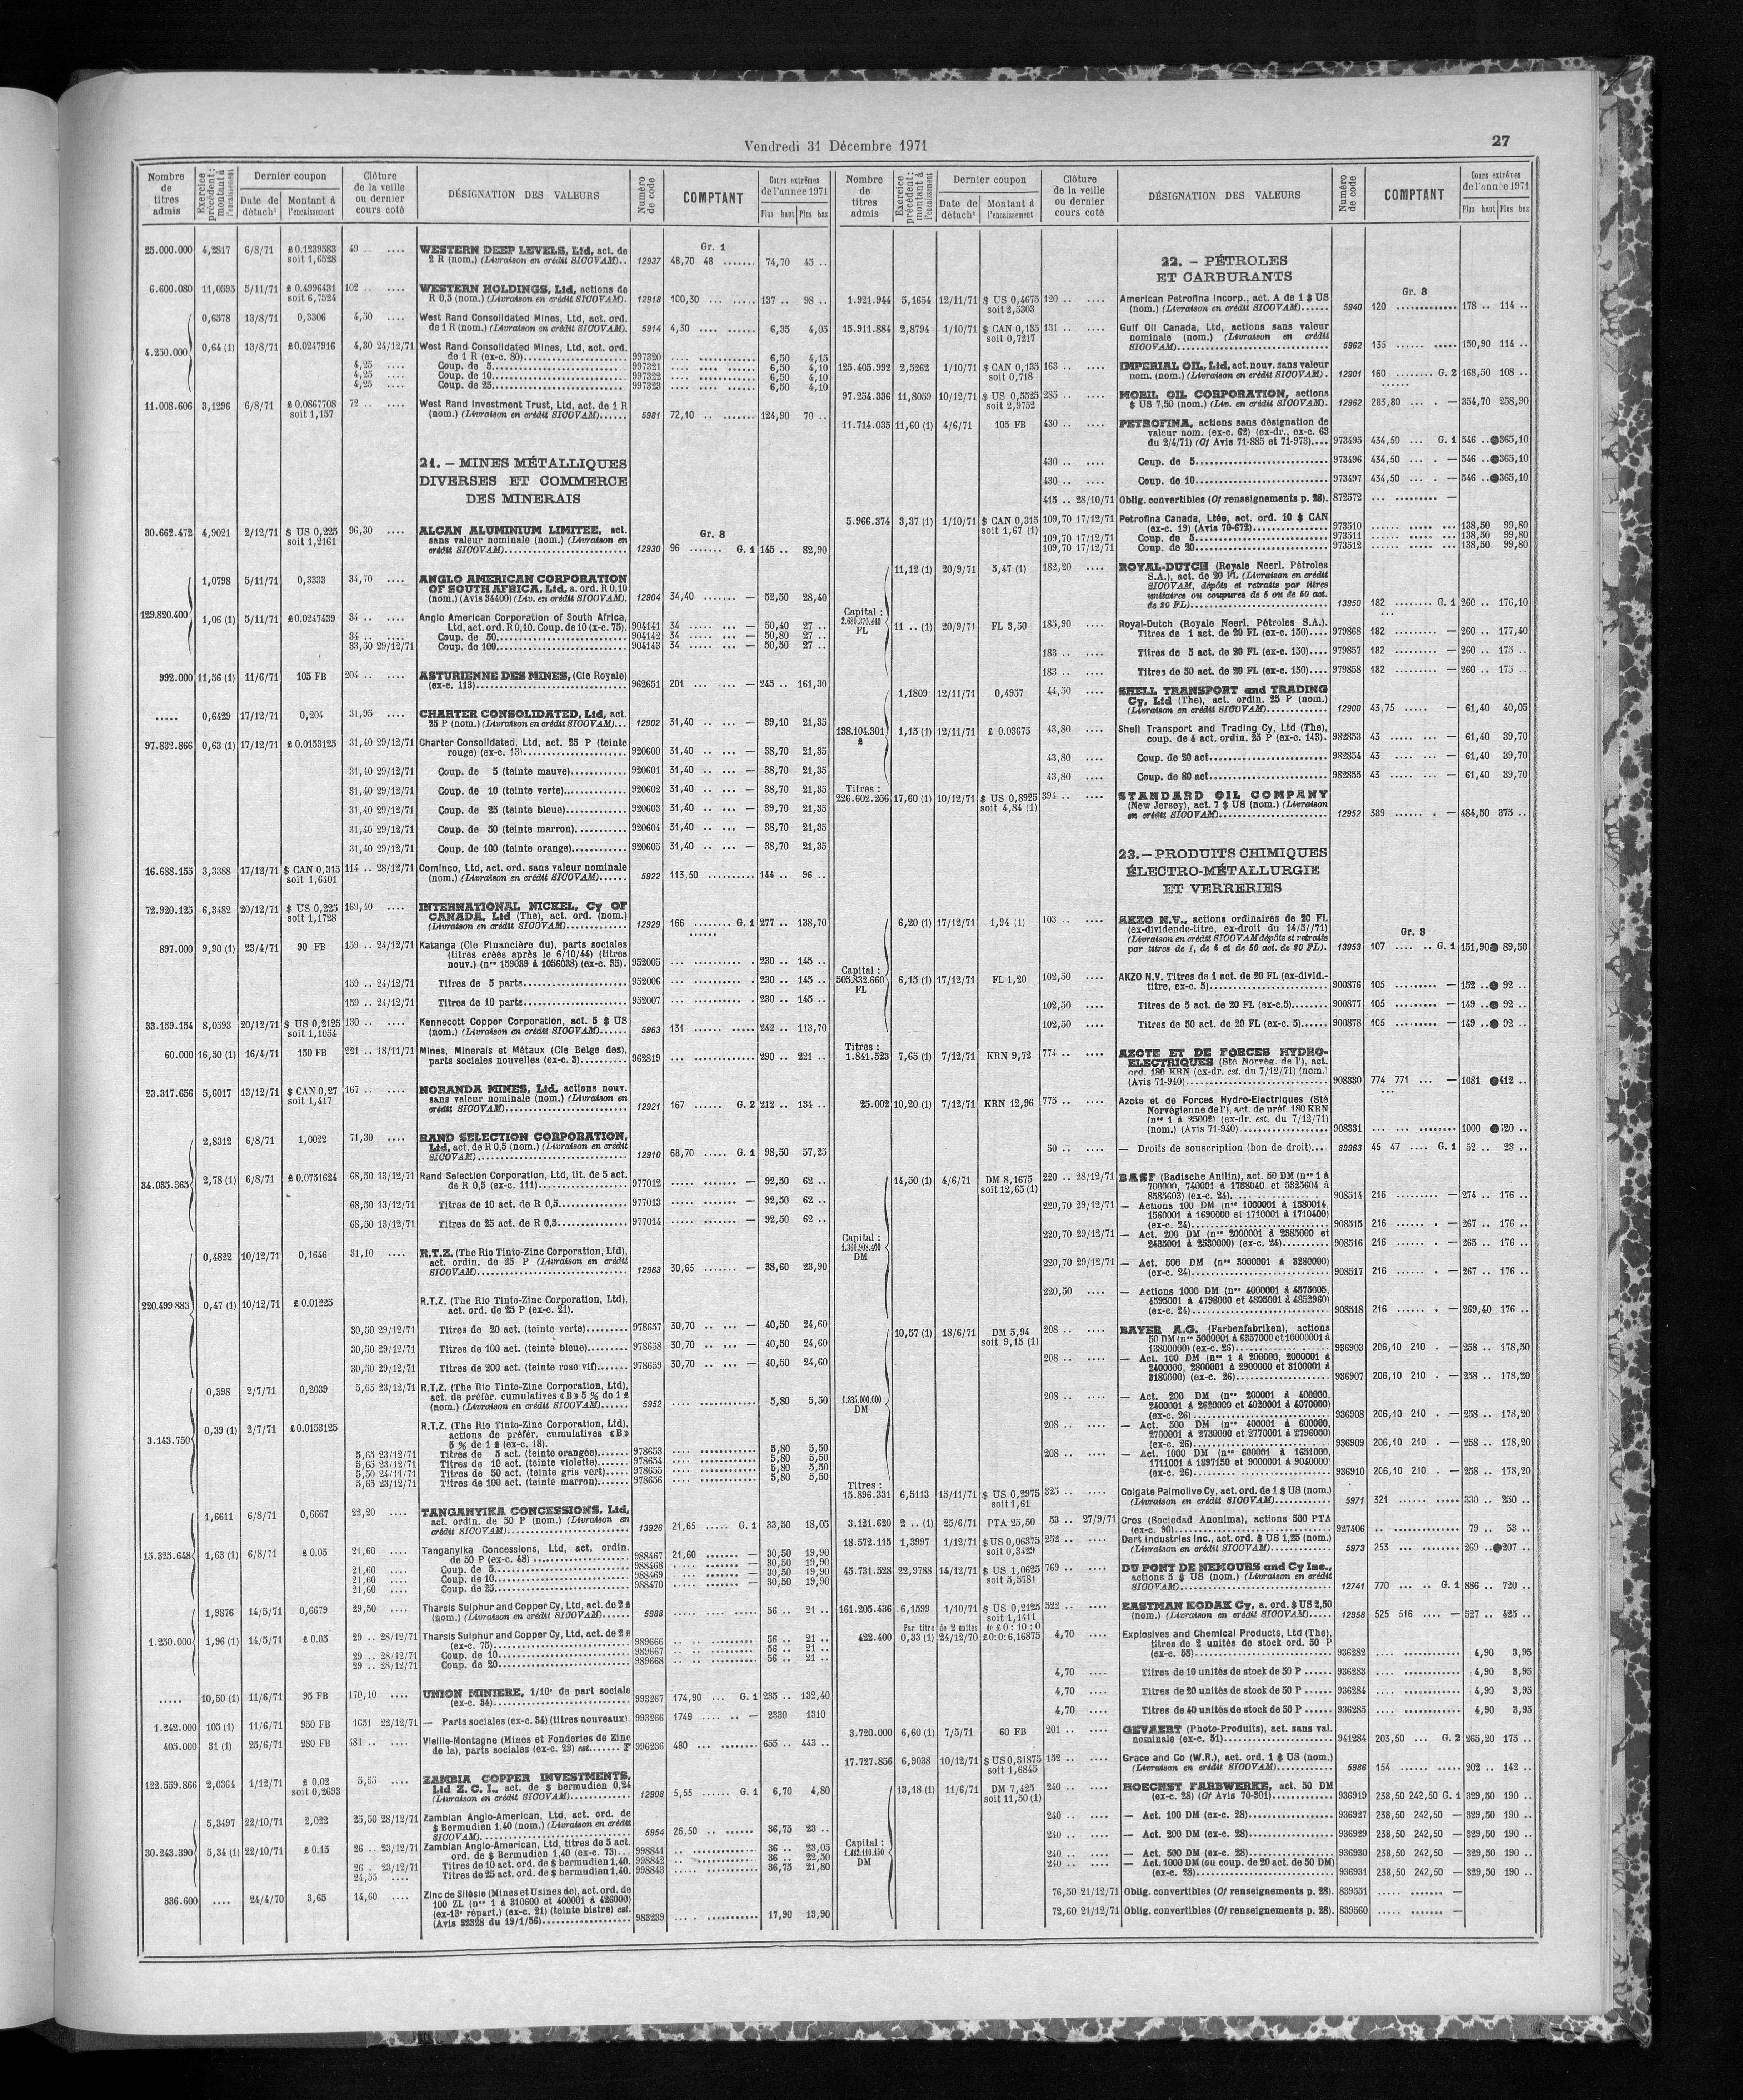 Vendredi 31 Décembre 1971
27
Nombre de titres admis
Exercice précédent : montant à l'encaissement
Dernier coupon
Date de détach^t
Montant à l'encaissement
Clôture de la veille ou dernier cours coté
DÉSIGNATION DES VALEURS
Numéro de code
COMPTANT
Cours extrêmes de l'année 1971
Plus haut Plus bas
Gr. 1
25.000.000 4,2817 6/8/71 £ 0.1239583 49 .. .... WESTERN DEEP LEVELS, Ltd, act. de
soit 1,6528 2 R (nom.) (Livraison en crédit SICOVAM).. 12937 48,70 48 ....... 74,70 45 ..
6.600.080 11,0595 5/11/71 £ 0.4996431 102 .. .... WESTERN HOLDINGS, Ltd, actions de
soit 6,7524 R 0,5 (nom.) (Livraison en crédit SICOVAM). 12918 100,30 ... ..... 137 .. 98 ..
0,6578 13/8/71 0,3306 4,50 .... West Rand Consolidated Mines, Ltd, act. ord.
de 1 R (nom.) (Livraison en crédit SICOVAM). 5914 4,30 .... ...... 6,35 4,05
4.250.000 0,64 (1) 13/8/71 £0.0247916 4,30 24/12/71 West Rand Consolidated Mines, Ltd, act. ord.
de 1 R (ex-c. 80) 997320 6,50 4,15
4,25 .... Coup. de 5 997321 6,50 4,10
4,25 .... Coup. de 10 997322 6,50 4,10
4,25 .... Coup. de 25 997323 6,50 4,10
11.008.606 3,1296 6/8/71 £ 0.0867708 72 .. .... West Rand Investment Trust, Ltd, act. de 1 R
soit 1,157 (nom.) (Livraison en crédit SICOVAM)...... 5981 72,10 .. ....... 124,90 70 ..
21. – MINES MÉTALLIQUES
DIVERSES ET COMMERCE
DES MINERAIS
Gr. 3
30.662.472 4,9021 2/12/71 $ US 0,225 96,30 .... ALCAN ALUMINIUM LIMITEE, act.
soit 1,2161 sans valeur nominale (nom.) (Livraison en
crédit SICOVAM) 12930 96 ....... G. 1 145 .. 82,90
1,0798 5/11/71 0,3333 34,70 .... ANGLO AMERICAN CORPORATION
OF SOUTH AFRICA, Ltd, a. ord. R 0,10
(nom.) (Avis 34400) (Liv. en crédit SICOVAM). 12904 34,40 ....... — 52,50 28,40
129.820.400 1,06 (1) 5/11/71 £0.0247439 34 .. .... Anglo American Corporation of South Africa,
Ltd, act. ord. R 0,10. Coup. de 10 (x-c. 75). 904141 34 ..... ... — 50,40 27 ..
34 .. .... Coup. de 50 904142 34 ..... ... — 50,80 27 ..
33,50 29/12/71 Coup. de 100 904143 34 ..... ... — 50,50 27 ..
992.000 11,56 (1) 11/6/71 105 FB 204 .. .... ASTURIENNE DES MINES, (Cie Royale)
(ex-c. 113) 962651 201 ... ... — 245 .. 161,30
..... 0,6429 17/12/71 0,204 31,95 .... CHARTER CONSOLIDATED, Ltd, act.
25 P (nom.) (Livraison en crédit SICOVAM)... 12902 31,40 .. ... — 39,10 21,35
97.832.866 0,63 (1) 17/12/71 £ 0.0153125 31,40 29/12/71 Charter Consolidated, Ltd, act. 25 P (teinte
rouge) (ex-c. 13) 920600 31,40 .. ... — 38,70 21,35
31,40 29/12/71 Coup. de 5 (teinte mauve) 920601 31,40 .. ... — 38,70 21,35
31,40 29/12/71 Coup. de 10 (teinte verte) 920602 31,40 .. ... — 38,70 21,35
31,40 29/12/71 Coup. de 25 (teinte bleue) 920603 31,40 .. ... — 39,70 21,35
31,40 29/12/71 Coup. de 50 (teinte marron) 920604 31,40 .. ... — 38,70 21,35
31,40 29/12/71 Coup. de 100 (teinte orange) 920605 31,40 .. ... — 38,70 21,35
16.638.155 3,3388 17/12/71 $ CAN 0,315 114 .. 28/12/71 Cominco, Ltd, act. ord. sans valeur nominale
soit 1,6401 (nom.) (Livraison en crédit SICOVAM)...... 5922 113,50 .......... 144 .. 96 ..
72.920.125 6,3482 20/12/71 $ US 0,225 169,40 .... INTERNATIONAL NICKEL, Cy OF
soit 1,1728 CANADA, Ltd (The), act. ord. (nom.)
(Livraison en crédit SICOVAM) 12929 166 ........ G. 1 277 .. 138,70
897.000 9,90 (1) 23/4/71 90 FB 159 .. 24/12/71 Katanga (Cie Financière du), parts sociales
(titres créés après le 6/10/44) (titres
nouv.) (nos 159039 à 1056038) (ex-c. 35). 952005 230 .. 145 ..
159 .. 24/12/71 Titres de 5 parts 952006 230 .. 145 ..
159 .. 24/12/71 Titres de 10 parts 952007 230 .. 145 ..
33.159.154 8,0593 20/12/71 $ US 0,2125 130 .. .... Kennecott Copper Corporation, act. 5 $ US
soit 1,1054 (nom.) (Livraison en crédit SICOVAM)...... 5963 131 ...... ..... 242 .. 113,70
60.000 16,50 (1) 16/4/71 150 FB 221 .. 18/11/71 Mines, Minerais et Métaux (Cie Belge des),
parts sociales nouvelles (ex-c. 3) 962819 290 .. 221 ..
23.317.656 5,6017 13/12/71 $ CAN 0,27 167 .. .... NORANDA MINES, Ltd, actions nouv.
soit 1,417 sans valeur nominale (nom.) (Livraison en
crédit SICOVAM) 12921 167 ...... G. 2 212 .. 134 ..
2,8312 6/8/71 1,0022 71,30 .... RAND SELECTION CORPORATION,
Ltd, act. de R 0,5 (nom.) (Livraison en crédit
SICOVAM) 12910 68,70 ..... G. 1 98,50 57,25
34.035.365 2,78 (1) 6/8/71 £ 0.0751624 68,50 13/12/71 Rand Selection Corporation, Ltd, tit. de 5 act.
de R 0,5 (ex-c. 111) 977012 — 92,50 62 ..
68,50 13/12/71 Titres de 10 act. de R 0,5 977013 — 92,50 62 ..
68,50 13/12/71 Titres de 25 act. de R 0,5 977014 — 92,50 62 ..
0,4822 10/12/71 0,1646 31,10 .... R.T.Z. (The Rio Tinto-Zinc Corporation, Ltd),
act. ordin. de 25 P (Livraison en crédit
SICOVAM) 12963 30,65 ....... — 38,60 23,90
220.499 883 0,47 (1) 10/12/71 £ 0.01225 R.T.Z. (The Rio Tinto-Zinc Corporation, Ltd),
act. ord. de 25 P (ex-c. 21).
30,50 29/12/71 Titres de 20 act. (teinte verte) 978657 30,70 .. ... — 40,50 24,60
30,50 29/12/71 Titres de 100 act. (teinte bleue) 978658 30,70 .. ... — 40,50 24,60
30,50 29/12/71 Titres de 200 act. (teinte rose vif) 978659 30,70 .. ... — 40,50 24,60
0,398 2/7/71 0,2039 5,65 23/12/71 R.T.Z. (The Rio Tinto-Zinc Corporation, Ltd),
act. de préfér. cumulatives «B» 5 % de 1 £
(nom.) (Livraison en crédit SICOVAM)...... 5952 5,80 5,50
3.143.750 0,39 (1) 2/7/71 £0.0153125 R.T.Z. (The Rio Tinto-Zinc Corporation, Ltd),
actions de préfér. cumulatives «B»
5 % de 1 £ (ex-c. 18).
5,65 23/12/71 Titres de 5 act. (teinte orangée) 978653 5,80 5,50
5,65 23/12/71 Titres de 10 act. (teinte violette) 978654 5,80 5,50
5,50 24/11/71 Titres de 50 act. (teinte gris vert) 978655 5,80 5,50
5,65 23/12/71 Titres de 100 act. (teinte marron) 978656 5,80 5,50
1,6611 6/8/71 0,6667 22,20 .... TANGANYIKA CONCESSIONS, Ltd,
act. ordin. de 50 P (nom.) (Livraison en
crédit SICOVAM) 13926 21,65 ..... G. 1 33,50 18,05
15.325.648 1,63 (1) 6/8/71 £ 0.05 21,60 .... Tanganyika Concessions, Ltd, act. ordin.
de 50 P (ex-c. 48) 988467 21,60 ....... — 30,50 19,90
21,60 .... Coup. de 5 988468 — 30,50 19,90
21,60 .... Coup. de 10 988469 — 30,50 19,90
21,60 .... Coup. de 25 988470 — 30,50 19,90
1,9876 14/5/71 0,6679 29,50 .... Tharsis Sulphur and Copper Cy, Ltd, act. de 2 £
(nom.) (Livraison en crédit SICOVAM)...... 5988 56 .. 21 ..
1.250.000 1,96 (1) 14/5/71 £ 0.05 29 .. 28/12/71 Tharsis Sulphur and Copper Cy, Ltd, act. de 2 £
(ex-c. 75) 989666 56 .. 21 ..
29 .. 28/12/71 Coup. de 10 989667 56 .. 21 ..
29 .. 28/12/71 Coup. de 20 989668 56 .. 21 ..
..... 10,50 (1) 11/6/71 95 FB 170,10 .... UNION MINIERE, 1/10e de part sociale
(ex-c. 34) 993267 174,90 ... G. 1 235 .. 132,40
1.242.000 105 (1) 11/6/71 950 FB 1651 22/12/71 — Parts sociales (ex-c. 34) (titres nouveaux). 993266 1749 .... .. — 2330 1310
405.000 31 (1) 25/6/71 280 FB 481 .. .... Vieille-Montagne (Mines et Fonderies de Zinc
de la), parts sociales (ex-c. 29) est....... F 996236 480 ... ........ 655 .. 443 ..
122.559.866 2,0364 1/12/71 £ 0.02 5,55 .... ZAMBIA COPPER INVESTMENTS,
soit 0,2693 Ltd Z. C. I., act. de $ bermudien 0,24
(Livraison en crédit SICOVAM) 12908 5,55 ...... G. 1 6,70 4,80
5,3497 22/10/71 2,022 25,50 28/12/71 Zambian Anglo-American, Ltd, act. ord. de
$ Bermudien 1,40 (nom.) (Livraison en crédit
SICOVAM) 5954 26,50 .. ...... 36,75 23 ..
30.243.390 5,34 (1) 22/10/71 £ 0.15 26 .. 23/12/71 Zambian Anglo-American, Ltd, titres de 5 act.
ord. de $ Bermudien 1,40 (ex-c. 73)... 998841 36 .. 23,05
26 . 23/12/71 Titres de 10 act. ord. de $ bermudien 1,40. 998842 36 .. 22,50
24,55 .... Titres de 25 act. ord. de $ bermudien 1,40. 998843 36,75 21,80
336.600 .... 24/4/70 3,65 14,60 .... Zinc de Silésie (Mines et Usines de), act. ord. de
100 ZL (nos 1 à 310600 et 400001 à 426000)
(ex-13e répart.) (ex-c. 21) (teinte bistre) est.
(Avis 32328 du 19/1/56) 983239 17,90 13,90
Nombre de titres admis
Exercice précédent : montant à l'encaissement
Dernier coupon
Date de détach^t
Montant à l'encaissement
Clôture de la veille ou dernier cours coté
DÉSIGNATION DES VALEURS
Numéro de code
COMPTANT
Cours extrêmes de l'année 1971
Plus haut Plus bas
22. – PÉTROLES
ET CARBURANTS
Gr. 3
1.921.944 5,1654 12/11/71 $ US 0,4675 120 .. .... American Petrofina Incorp., act. A de 1 $ US
soit 2,5303 (nom.) (Livraison en crédit SICOVAM)...... 5940 120 ............ 178 .. 114 ..
15.911.884 2,8794 1/10/71 $ CAN 0,135 131 .. .... Gulf Oil Canada, Ltd, actions sans valeur
soit 0,7217 nominale (nom.) (Livraison en crédit
SICOVAM) 5962 135 ...... ..... 150,90 114 ..
125.405.992 2,5262 1/10/71 $ CAN 0,135 163 .. .... IMPERIAL OIL, Ltd, act. nouv. sans valeur
soit 0,718 nom. (nom.) (Livraison en crédit SICOVAM). 12901 160 ........ G. 2 168,50 108 ..
97.254.336 11,8059 10/12/71 $ US 0,5525 285 .. .... MOBIL OIL CORPORATION, actions
soit 2,9752 $ US 7,50 (nom.) (Liv. en crédit SICOVAM). 12962 283,80 ... . — 354,70 258,90
11.714.035 11,60 (1) 4/6/71 105 FB 430 .. .... PETROFINA, actions sans désignation de
valeur nom. (ex-c. 62) (ex-dr., ex-c. 63
du 2/4/71) (Cf Avis 71-885 et 71-973).... 973495 434,50 ... G. 1 546 ..●365,10
430 .. .... Coup. de 5 973496 434,50 ... . — 546 ..●365,10
430 .. .... Coup. de 10 973497 434,50 ... . — 546 ..●365,10
415 .. 28/10/71 Oblig. convertibles (Cf renseignements p. 28). 872572 ... ......... —
5.966.374 3,37 (1) 1/10/71 $ CAN 0,315 109,70 17/12/71 Petrofina Canada, Ltée, act. ord. 10 $ CAN
soit 1,67 (1) (ex-c. 19) (Avis 70-672) 973510 138,50 99,80
109,70 17/12/71 Coup. de 5 973511 138,50 99,80
109,70 17/12/71 Coup. de 20 973512 138,50 99,80
11,12 (1) 20/9/71 5,47 (1) 182,20 .... ROYAL-DUTCH (Royale Neerl. Pétroles
S.A.), act. de 20 FL (Livraison en crédit
SICOVAM, dépôts et retraits par titres
unitaires ou coupures de 5 ou de 50 act.
de 20 FL) 13950 182 ........ G. 1 260 .. 176,10
Capital :
2.680.370.440
FL
11 .. (1) 20/9/71 FL 3,50 185,90 .... Royal-Dutch (Royale Neerl. Pétroles S.A.).
Titres de 1 act. de 20 FL (ex-c. 150).... 979868 182 ......... — 260 .. 177,40
183 .. .... Titres de 5 act. de 20 FL (ex-c. 150).... 979857 182 ......... — 260 .. 175 ..
183 .. .... Titres de 50 act. de 20 FL (ex-c. 150).... 979858 182 ......... — 260 .. 175 ..
1,1809 12/11/71 0,4957 44,50 .... SHELL TRANSPORT and TRADING
Cy, Ltd (The), act. ordin. 25 P (nom.)
(Livraison en crédit SICOVAM) 12900 43,75 ..... — 61,40 40,05
138.104.301
£
1,15 (1) 12/11/71 £ 0.03675 43,80 .... Shell Transport and Trading Cy, Ltd (The),
coup. de 4 act. ordin. 25 P (ex-c. 143). 982853 43 ..... ... — 61,40 39,70
43,80 .... Coup. de 20 act 982854 43 .... ... — 61,40 39,70
43,80 .... Coup. de 80 act 982855 43 .... ... — 61,40 39,70
Titres :
226.602.266 17,60 (1) 10/12/71 $ US 0,8925 394 .. .... STANDARD OIL COMPANY
soit 4,84 (1) (New Jersey), act. 7 $ US (nom.) (Livraison
en crédit SICOVAM) 12952 389 ...... . — 484,50 375 ..
23. – PRODUITS CHIMIQUES
ÉLECTRO-MÉTALLURGIE
ET VERRERIES
Gr. 3
6,20 (1) 17/12/71 1,94 (1) 103 .. .... AKZO N.V., actions ordinaires de 20 FL
(ex-dividende-titre, ex-droit du 14/5//71)
(Livraison en crédit SICOVAM dépôts et retraits
par titres de 1, de 5 et de 50 act. de 20 FL). 13953 107 .... .. G. 1 151,90● 89,50
Capital :
505.832.660
FL
6,15 (1) 17/12/71 FL 1,20 102,50 .... AKZO N.V. Titres de 1 act. de 20 FL (ex-divid.-
titre, ex-c. 5) 900876 105 ......... — 152 ..● 92 ..
102,50 .... Titres de 5 act. de 20 FL (ex-c.5) 900877 105 ......... — 149 ..● 92 ..
102,50 .... Titres de 50 act. de 20 FL (ex-c. 5) 900878 105 ......... — 149 ..● 92 ..
Titres :
1.841.523 7,65 (1) 7/12/71 KRN 9,72 774 .. .... AZOTE ET DE FORCES HYDRO-
ELECTRIQUES (Sté Norvég. de l'), act.
ord. 180 KRN (ex-dr. est. du 7/12/71) (nom.)
(Avis 71-940) 908330 774 771 ... — 1081 ●412 ..
25.002 10,20 (1) 7/12/71 KRN 12,96 775 .. .... Azote et de Forces Hydro-Electriques (Sté
Norvégienne de l'), act. de préf. 180 KRN
(nos 1 à 25002) (ex-dr. est. du 7/12/71)
(nom.) (Avis 71-940) 908331 1000 ●420 ..
50 .. .... — Droits de souscription (bon de droit)... 89963 45 47 .... G. 1 52 .. 23 ..
14,50 (1) 4/6/71 DM 8,1675 220 .. 28/12/71 BASF (Badische Anilin), act. 50 DM (nos 1 à
soit 12,65 (1) 700000, 740001 à 1738040 et 5325604 à
8585603) (ex-c. 24) 908514 216 ......... — 274 .. 176 ..
220,70 29/12/71 — Actions 100 DM (nos 1000001 à 1380014,
1560001 à 1690000 et 1710001 à 1710400)
(ex-c. 24) 908515 216 ...... . — 267 .. 176 ..
Capital :
1.360.908.400
DM
220,70 29/12/71 — Act. 200 DM (nos 2000001 à 2385000 et
2435001 à 2530000) (ex-c. 24) 908516 216 ...... . — 265 .. 176 ..
220,70 29/12/71 — Act. 500 DM (nos 3000001 à 3280000)
(ex-c. 24) 908517 216 ...... . — 267 .. 176 ..
220,50 .... — Actions 1000 DM (nos 4000001 à 4575005,
4595001 à 4798000 et 4805001 à 4852960)
(ex-c. 24) 908518 216 ...... . — 269,40 176 ..
10,57 (1) 18/6/71 DM 5,94 208 .. .... BAYER A.G. (Farbenfabriken), actions
soit 9,15 (1) 50 DM (nos 5000001 à 6357000 et 10000001 à
13800000) (ex-c. 26) 936903 206,10 210 . — 258 .. 178,50
208 .. .... — Act. 100 DM (nos 1 à 200000, 2000001 à
2400000, 2800001 à 2900000 et 3100001 à
3180000) (ex-c. 26) 936907 206,10 210 . — 258 .. 178,20
1.835.000.000
DM
208 .. .... — Act. 200 DM (nos 200001 à 400000,
2400001 à 2620000 et 4020001 à 4070000)
(ex-c. 26) 936908 206,10 210 . — 258 .. 178,20
208 .. .... — Act. 500 DM (nos 400001 à 600000,
2700001 à 2730000 et 2770001 à 2796000)
(ex-c. 26) 936909 206,10 210 . — 258 .. 178,20
208 .. .... — Act. 1000 DM (nos 690001 à 1651000,
1711001 à 1897150 et 9000001 à 9040000)
(ex-c. 26) 936910 206,10 210 . — 258 .. 178,20
Titres :
15.896.331 6,5113 15/11/71 $ US 0,2975 325 .. .... Colgate Palmolive Cy, act. ord. de 1 $ US (nom.)
soit 1,61 (Livraison en crédit SICOVAM) 5971 321 ...... ..... 330 .. 250 ..
3.121.620 2 .. (1) 25/6/71 PTA 25,50 53 .. 27/9/71 Cros (Sociedad Anonima), actions 500 PTA
(ex-c. 90) 927406 79 .. 53 ..
18.572.115 1,3997 1/12/71 $ US 0,06375 252 .. .... Dart Industries Inc., act. ord. $ US 1,25 (nom.)
soit 0,3429 (Livraison en crédit SICOVAM) 5973 253 ... ........ 269 ..●207 ..
45.731.528 22,9788 14/12/71 $ US 1,0625 769 .. .... DU PONT DE NEMOURS and Cy Inc.,
soit 5,5781 actions 5 $ US (nom.) (Livraison en crédit
SICOVAM) 12741 770 ... .. G. 1 886 .. 720 ..
161.205.436 6,1599 1/10/71 $ US 0,2125 522 .. .... EASTMAN KODAK Cy, a. ord. $ US 2,50
soit 1,1411 (nom.) (Livraison en crédit SICOVAM)..... 12958 525 516 .... — 527 .. 425 ..
Par titre de 2 unités de £ 0 : 10 : 0
422.400 0,33 (1) 24/12/70 £0:0:6,16875 4,70 .... Explosives and Chemical Products, Ltd (The),
titres de 2 unités de stock ord. 50 P
(ex-c. 58) 936282 4,90 3,95
4,70 .... Titres de 10 unités de stock de 50 P ...... 936283 4,90 3,95
4,70 .... Titres de 20 unités de stock de 50 P ...... 936284 4,90 3,95
4,70 .... Titres de 40 unités de stock de 50 P ...... 936285 4,90 3,95
3.720.000 6,60 (1) 7/5/71 60 FB 201 .. .... GEVAERT (Photo-Produits), act. sans val.
nominale (ex-c. 51) 941284 203,50 ... G. 2 265,20 175 ..
17.727.856 6,9038 10/12/71 $ US 0,31875 152 .. .... Grace and Co (W.R.), act. ord. 1 $ US (nom.)
soit 1,6845 (Livraison en crédit SICOVAM) 5986 154 ...... ..... 202 .. 142 ..
13,18 (1) 11/6/71 DM 7,425 240 .. .... HOECHST FARBWERKE, act. 50 DM
soit 11,50 (1) (ex-c. 28) (Cf Avis 70-301) 936919 238,50 242,50 G. 1 329,50 190 ..
240 .. .... — Act. 100 DM (ex-c. 28) 936927 238,50 242,50 — 329,50 190 ..
240 .. .... — Act. 200 DM (ex-c. 28) 936929 238,50 242,50 — 329,50 190 ..
Capital :
1.482.110.450
DM
240 .. .... — Act. 500 DM (ex-c. 28) 936930 238,50 242,50 — 329,50 190 ..
240 .. .... — Act. 1000 DM (ou coup. de 20 act. de 50 DM)
(ex-c. 28) 936931 238,50 242,50 — 329,50 190 ..
76,50 21/12/71 Oblig. convertibles (Cf renseignements p. 28). 839551 ..... ....... —
72,60 21/12/71 Oblig. convertibles (Cf renseignements p. 28). 839560 ..... ....... —